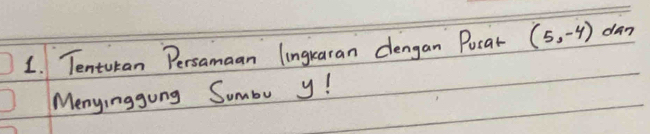 1. Tentukan Persamaan lingkaran dengan Pusat (5,-4) dan
Menyinggung Sumbu y!